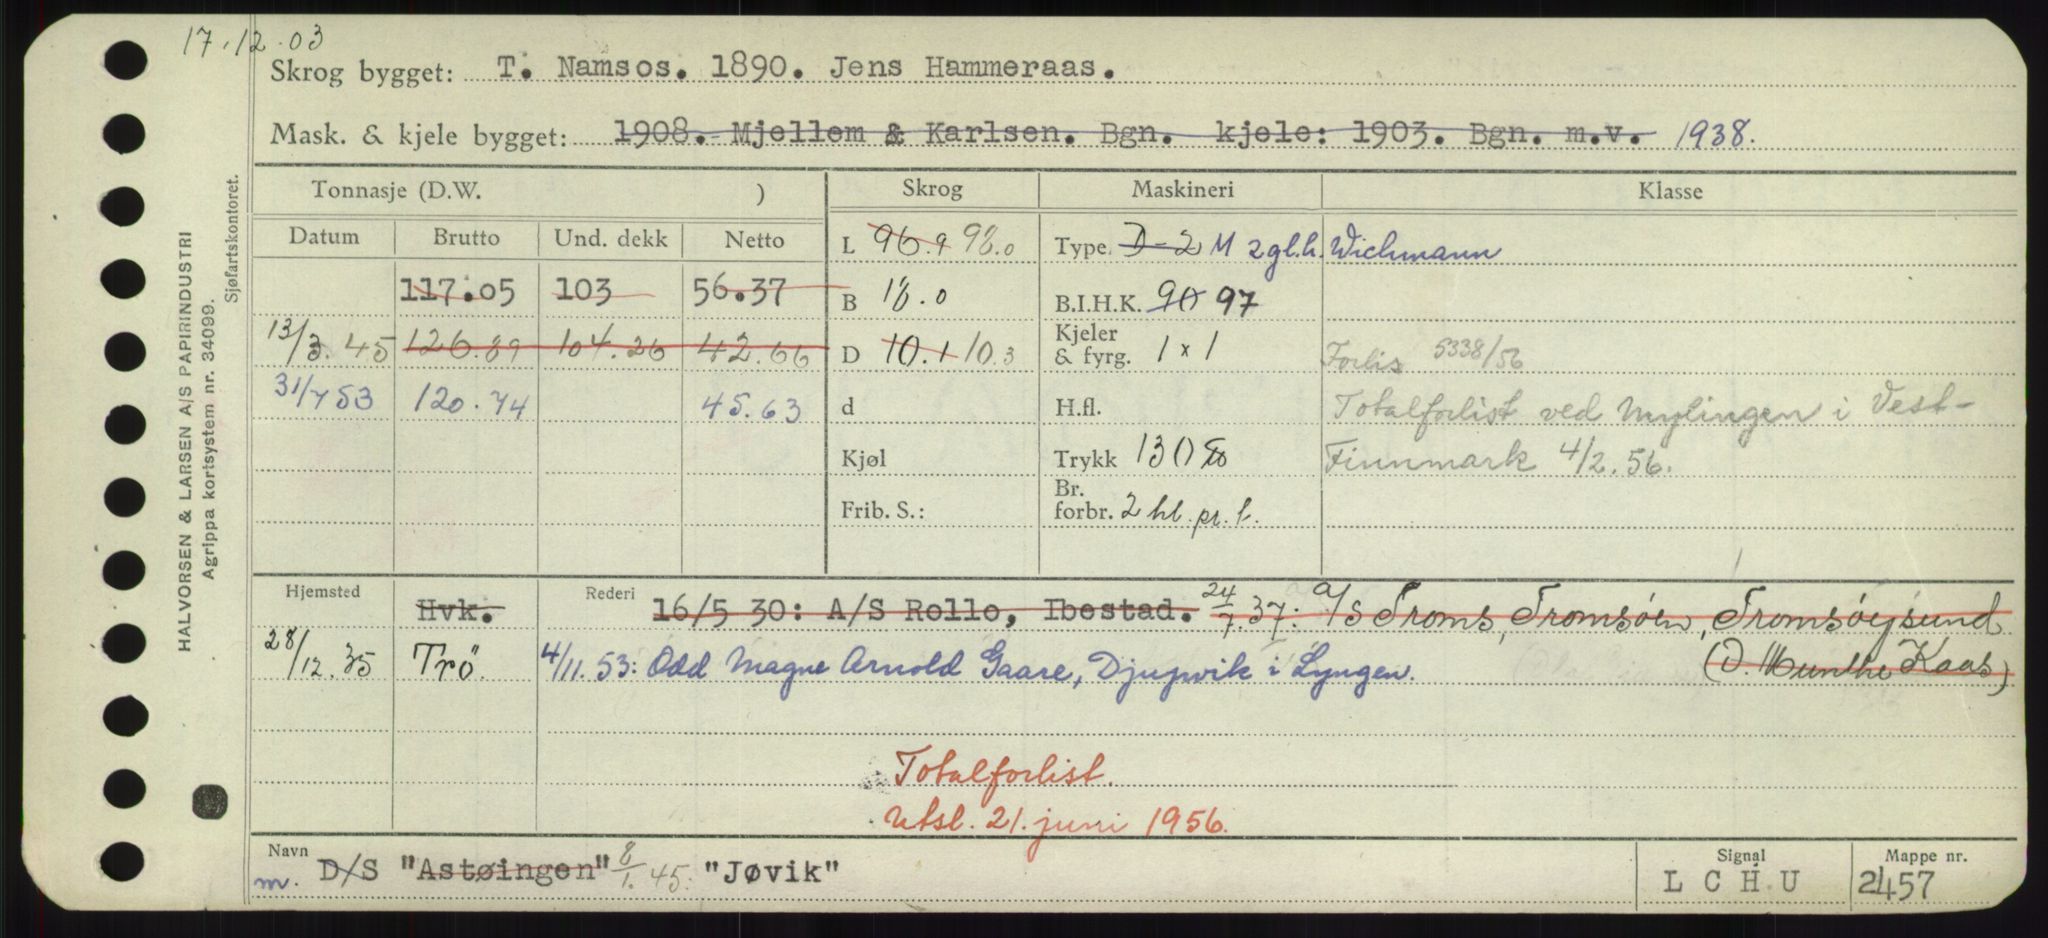 17.12.03
Skrog bygget: T. Namsos. 1890. Jens Hammeraas.
Mask. & kjele bygget: 1908. Mjellem & Karlsen. Bgn. kjele: 1903. Bgn. m.v. 1938.
HALVORSEN & LARSEN A/S PAPIRINDUSTRI
Agrippa kortsystem nr. 34099.
Sjøfartskontoret.
Tonnasje (D.W. ) Skrog Maskineri Klasse
Datum Brutto Und. dekk Netto L 96.9 98.0 Type. D-2 M 2 gl.h. Wichmann
117.05 103 56.37 B 18.0 B.I.H.K. 90 97
13/3.45 126.89 104.26 42.66 D 10.1 10.3 Kjeler & fyrg. 1 x 1 Forlis 5338/56
31/7 53 120.74 45.63 d H.fl. Totalforlist ved Mylingen i Vest-
Kjøl Trykk 130 Finnmark 4/2.56.
Frib. S.: Br. forbr. 2 hl. pr. t.
Hjemsted Hvk. Rederi 16/5 30: A/S Rollo, Ibestad. 24/7.37: A/S Troms, Tromsöen, Tromsöysund
28/12.35 Trö. 4/11.53: Odd Magne Arnold Gaare, Djupvik i Lyngen. (D. Munthe Kaas)
Totalforlist.
Utsl. 21. juni 1956.
Navn m. D/S "Astøingen" 8/1.45: "Jøvik" Signal L C H U Mappe nr. 2457